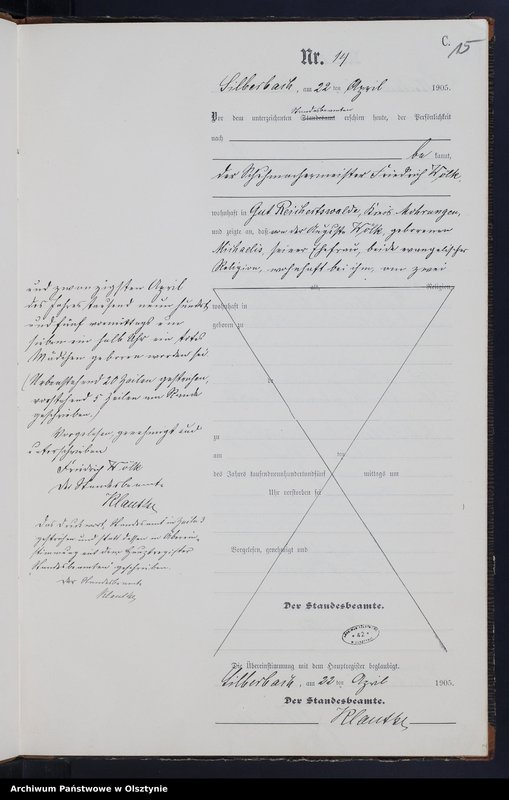 C.
15
Nr. 14
Silberbach, am 22 ten April 1905.
Standesbeamten
Vor dem unterzeichneten Standesamt erschien heute, der Persönlichkeit
nach
be kannt,
der Schuhmachermeister Friedrich Wölk,
wohnhaft in Gut Reichertswalde, Kreis Mohrungen,
und zeigte an, daß von der Auguste Wölk, geborenen
Michaelis, seiner Ehefrau, beide evangelischer
Religion, wohnhaft bei ihm, am zwei
und zwanzigsten April
des Jahres tausend neun hundert
und fünf vormittags um
sieben ein halb Uhr ein totes
Mädchen geboren worden sei.
(Nebenstehend 20 Zeilen gestrichen,
vorstehend 5 Zeilen am Rande
geschrieben.)
Vorgelesen, genehmigt und
unterschrieben
Friedrich Wölk
Der Standesbeamte
Klautke
Das Druckwort "Standesamt" in Zeile 3
gestrichen und statt dessen in Überein-
stimmung mit dem Hauptregister
"Standesbeamten" geschrieben.
Der Standesbeamte
Klautke
alt, Religion,
wohnhaft in
geboren zu
zu
am ten
des Jahres tausendneunhundertundfünf mittags um
Uhr verstorben sei
Vorgelesen, genehmigt und
Der Standesbeamte.
Die Übereinstimmung mit dem Hauptregister beglaubigt.
Silberbach, am 22 ten April 1905.
Der Standesbeamte.
Klautke
Archiwum Państwowe w Olsztynie